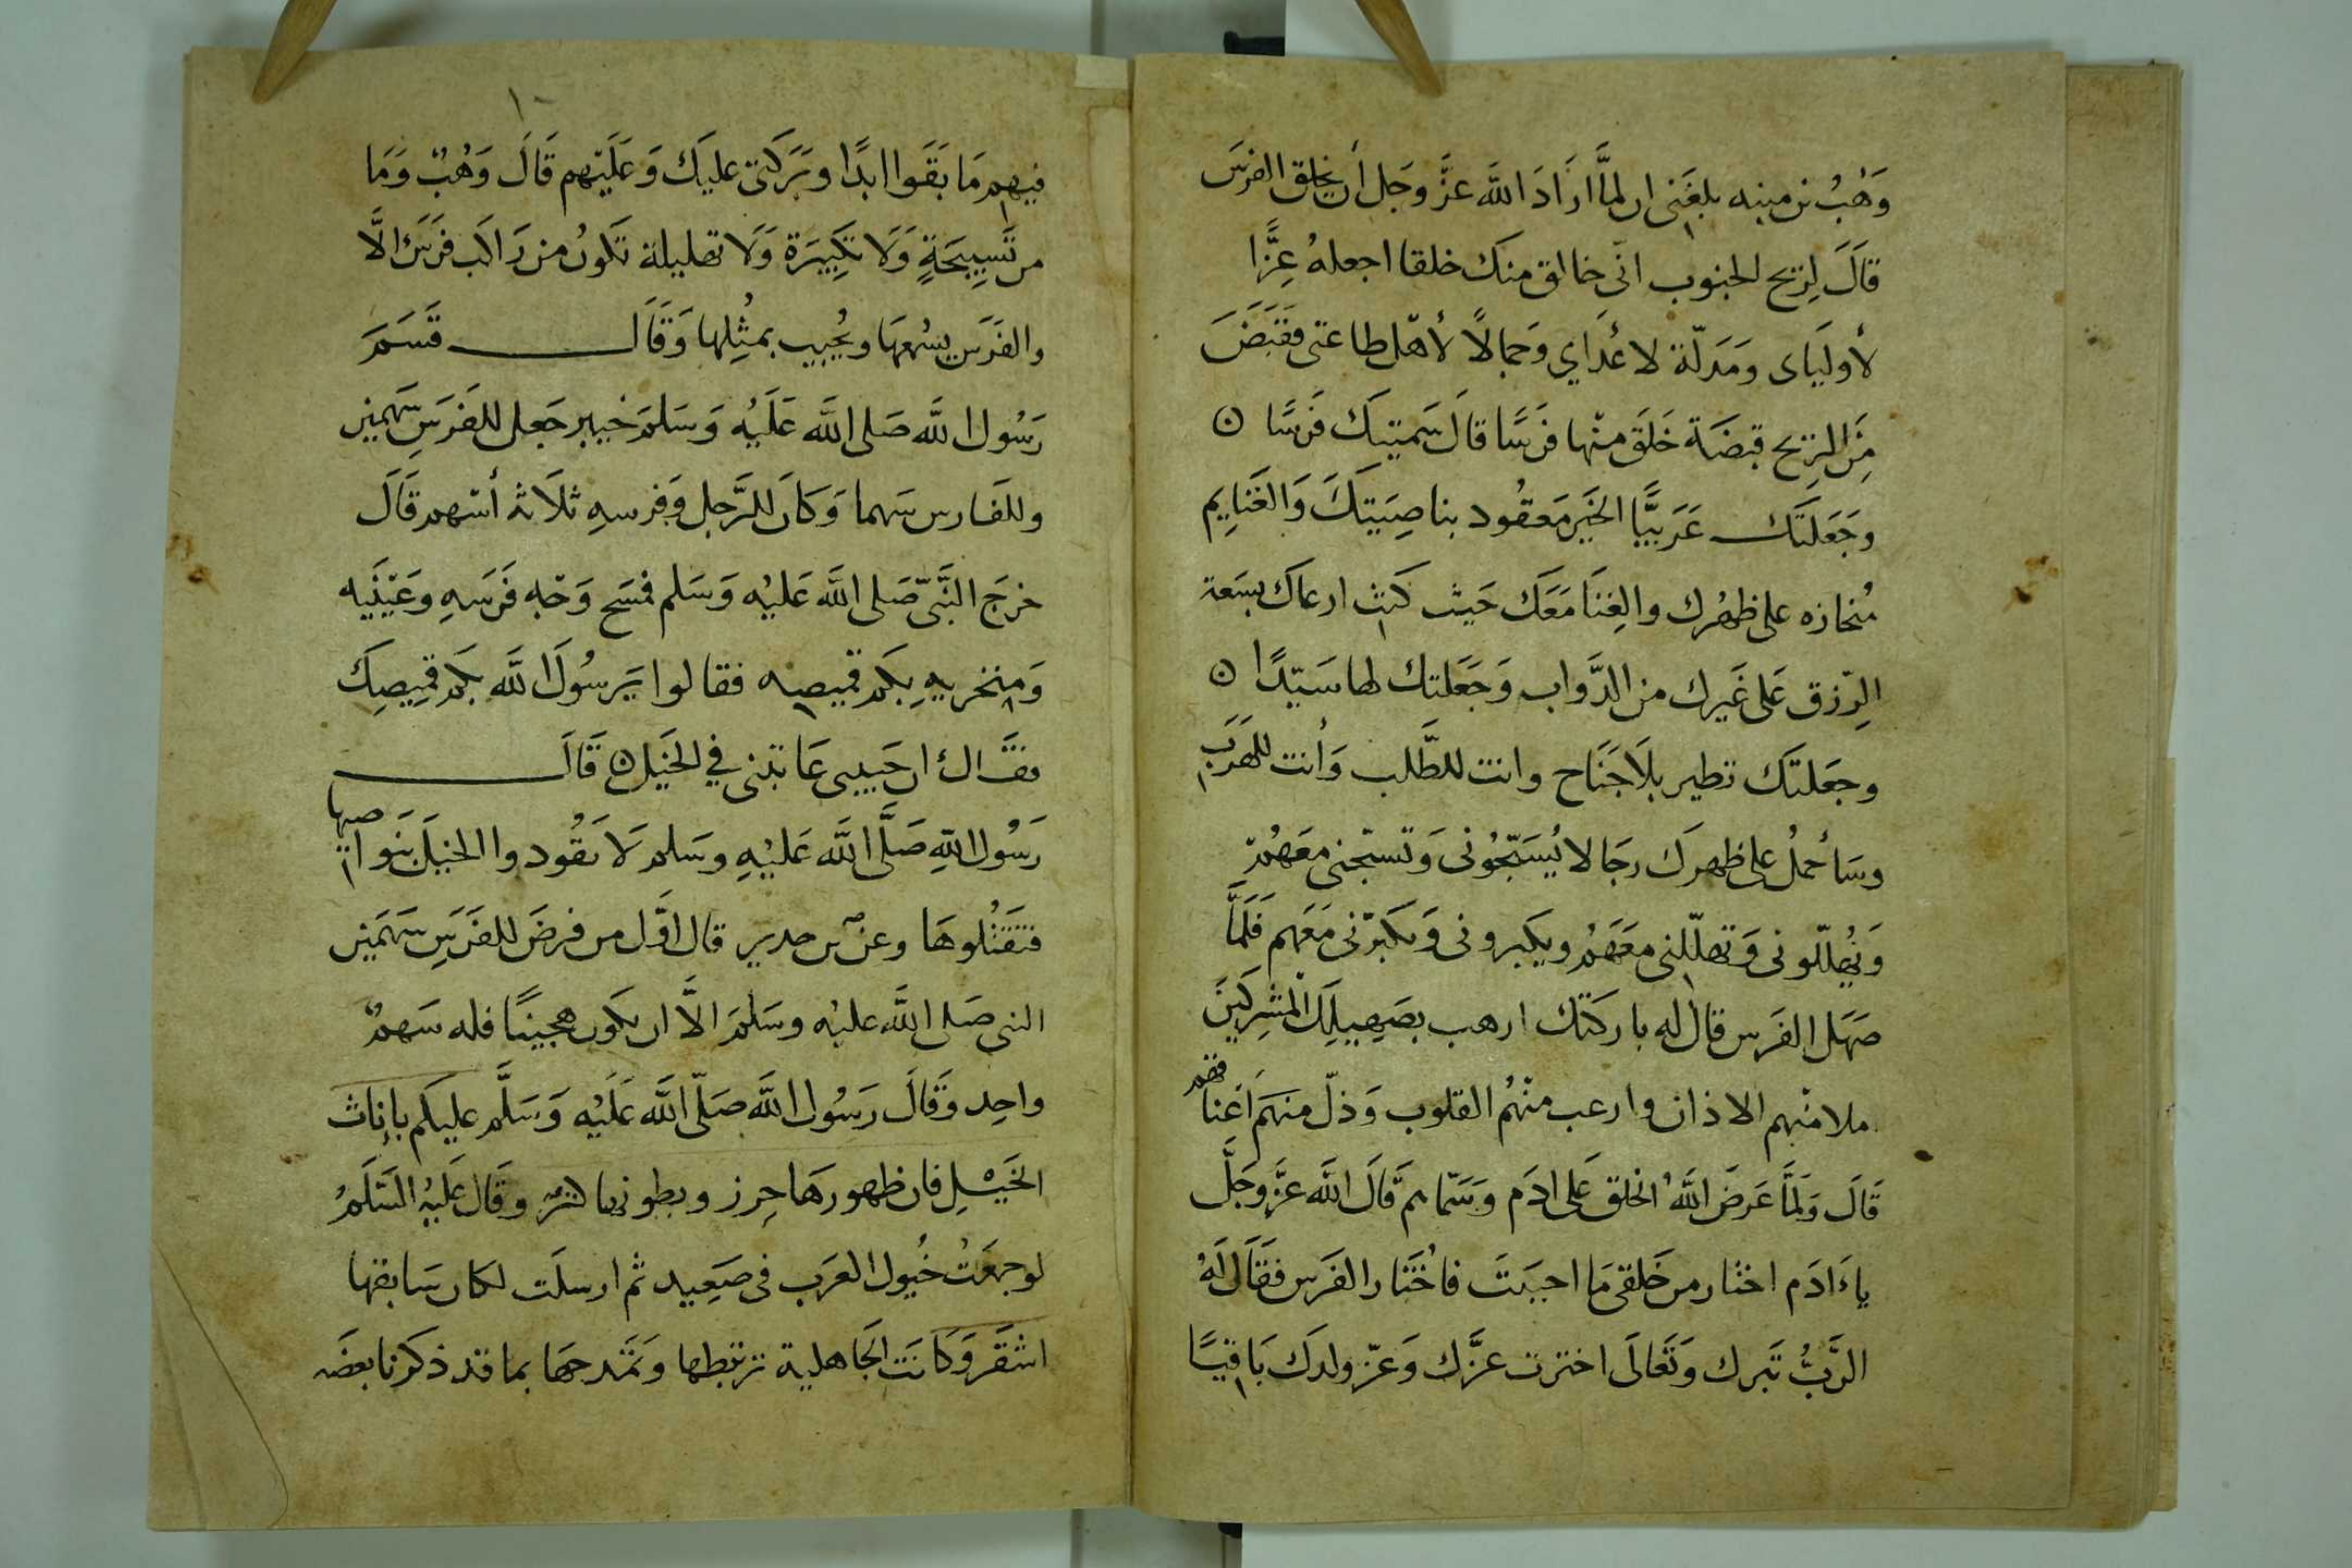 وَهْبُ بن منبه بلغَنى ان لمَّا ارَادَ الله عزَّ وجَل أن يخلق الفرسَ
قَالَ لِرِيح الجنوب انّى خالق منك خلقا اجعلهُ عِزًّا
لأوليَاى وَمَذلّة لاعْدَاي وَجمالًا لأهل طاعتى فقَبَضَ
مِنَ الرِيح قبضَة خَلَقَ منْها فرَسًا قالَ سَميتكَ فَرَسًا ن
وجَعَلتَك عَرَبيًّا الخَير مَعقُود بناصِيَتِكَ وَالغَنايم
مُنحازه على ظهْرك والغِنَا مَعَك حَيث كنت ارعاك بسَعة
الرّزق عَلى غَيرك من الدَّواب وَجَعَلتك لها سَيّدًا ن
وجعَلتَك تطير بلَا جَنَاح وانت للطَّلب وَأنت للهَرَب
وسَأحملُ على ظهرك رجَالا يُسَبّحُونى وَتسبّحنى معَهُمْ
وَيُهَلّلونى وَتهلّلنى معَهَمُ ويكبرونى وَتكبّرنى مَعَهم فَلَمَّا
صَهَل الفَرَس قال له باركتك ارهب بصَهِيلِكَ المُشرِكينَ
املا منْهم الاذان وارعب منْهُم القلوب وَذلّ منهَم أعْنَاقهم
قَالَ وَلَمَّا عَرَضَ اللهُ الخلق عَلى ادَم وَسَمّاهم قَالَ الله عزَّ وجَلَّ
ياءَادَم اختار من خَلقى مَا احبَبتَ فاختَار الفَرَس فقَالَ لَهُ
الرَّبُّ تبرك وَتَعَالَى اخترت عزّك وَعزّ ولدَك بَاقيًا
١٠
فيهم مَا بَقَوا ابدًا وبَرَكتى عليكَ وَعَلَيْهم قَالَ وَهْبٌ وَمَا
من تَسْبِيحَةٍ وَلَا تكبِيرَة وَلَا تهليلة تكونُ من رَاكب فرَسٍ الَّا
والفَرَس يسْمعهَا ويُجيب بمثْلها وَقَالَ قَسَمَ
رَسُول الله صَلى الله عَلَيْه وَسَلمَ خيبر جَعل للفَرَسِ سَهمين
وللفَارس سَهما وَكَان للرَّجل وَفرسهِ ثلَاثة أسْهم قَالَ
خرجَ النَّبىّ صَلى الله عَليْه وَسَلم فمَسَح وَجْه فَرَسَهِ وعَيْنَيه
وَمِنخريهِ بِكم قميصه فقالوا يَرسُولَ الله بكم قمِيصِكَ
فقال ان حَبيبى عَاتبنى في الخَيل ن قَالَ
رَسُول اللهِ صَلَّى الله عَليْهِ وسَلم لَا تقُودوا الخيل بنَواصيها
فتَقتُلوهَا وعن بن حدير قال اوّل من فرضَ للفَرَسِ سَهمَين
النبى صَلى الله عليْه وسَلمَ الَّا ان يكون هجينًا فله سَهمٌ
واحِد وَقَالَ رَسُول الله صَلّى الله عَلَيْه وَسَلَّم عليكم بإناث
الخَيْلِ فان ظهورهَا حِرز وبطونها كنز وقَال عَليْهُ السَّلَمُ
لو جمعَتْ خُيول العرَب فى صَعِيد ثم ارسلَت لكان سَابقها
اشقَر وَكَانَت الجَاهلية ترتبطها وَتمَدحهَا بما قد ذكرنا بعضَه